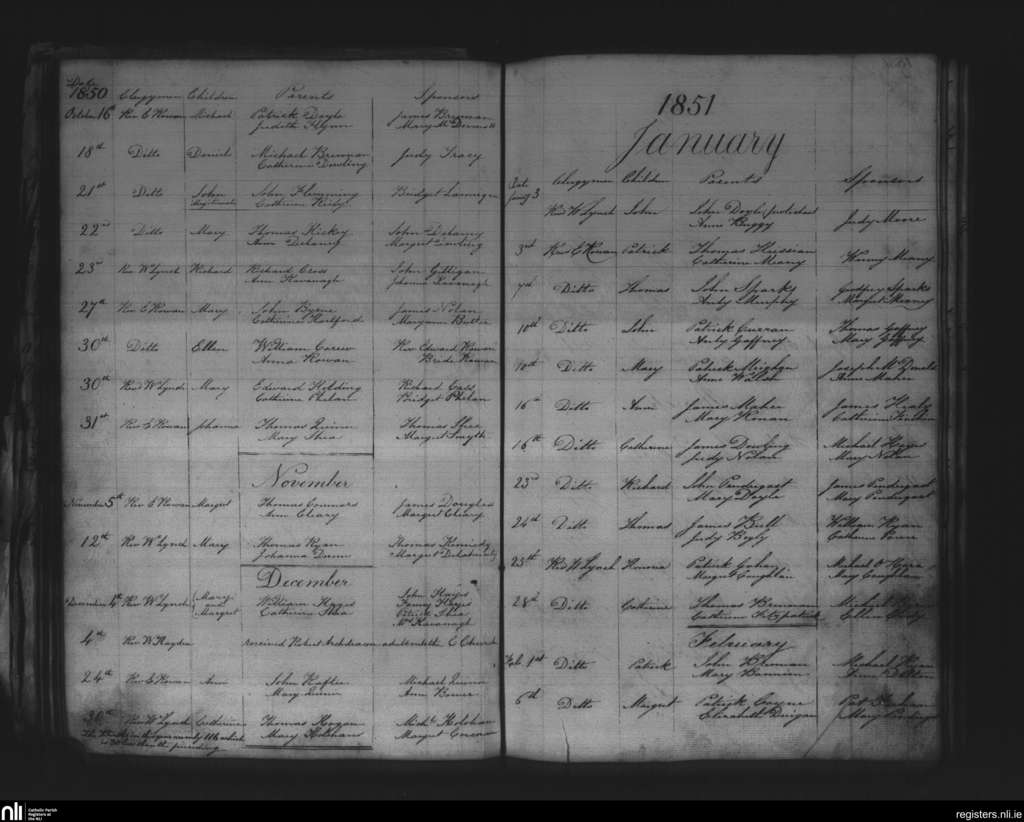 Date
1850 Clergymen Children Parents Sponsors
October 16th Rev E Rowan Michael Patrick Doyle James Brennan
Judith Flynn Mary McDermott
18th Ditto Daniel Michael Brennan Judy Tracy
Catherine Dowling
21st Ditto John John Flemming Bridget Lannigan
illegitimate Catherine
22nd Ditto Mary Thomas Hicky John Delaney
Ann Delaney Margret Dowling
23rd Rev W Lynch Richard Richard Cross John Gilligan
Ann Kavanagh Johanna Kavanagh
27th Rev E Rowan Mary John Byrne James Nolan
Catherine Hartford Maryanne Butler
30th Ditto Ellen William Carew Rev Edward Rowan
Anna Rowan Bride Rowan
30th Revd W Lynch Mary Edward Holding Richard Cass
Catherine Phelan Bridget Phelan
31st Rev E Rowan Johanna Thomas Quinn Thomas Shea
Mary Shea Margret Smyth
November
November 5th Rev E Rowan Margret Thomas Connors James Douglas
Ann Cleary Margret Cleary
12th Rev W Lynch Mary Thomas Ryan Thomas Kennedy
Johanna Dunn Margret Delahunty
December
December 4th Rev W Lynch Mary William Hayes John Hayes
and Catherine Shea Fanny Hayes
Margret Patrick Shea
Mrs Kavanagh
4th Rev W Hayden received Robert Archdeacon adult into the C Church
24th Rev E Rowan Ann John Hafter Michael Quinn
Mary Quinn Ann Bower
30th Rev W Lynch Catherine Thomas Hogan Michl Holohan
Mary Holohan Margret
The in the year namely 116 which
is less than the preceding
1851
January
Date Clergymen Children Parents Sponsors
Jany 3 Rev W Lynch John John Doyle (protestant Judy Moore
Anne Buggy
3rd Rev E Rowan Patrick Thomas Hussian Meany
Catherine Meany
7th Ditto Thomas John Sparks Godfrey Sparks
Anty Murphy Margret Meany
10th Ditto John Patrick Curran Thomas Gaffney
Anty Gaffney Mary Gaffney
10th Ditto Mary Patrick Meighan Joseph McDonald
Anne Walsh Anne Maher
16th Ditto Ann James Maher James Healy
Mary Ronan Catherine
16th Ditto Catherine James Dowling Michael Hayes
Judy Nolan Mary Nolan
23rd Ditto Richard John Pendergast James Pendergast
Mary Doyle Mary Pendergast
24th Ditto Thomas James Bull William Ryan
Judy Catherine Power
25th Rev W Lynch Honoria Patrick Gahan Michael O Hara
Margret Coughlan Mary Coughlan
28th Ditto Catherine Thomas Brennan Michael
Catherine Fitzpatrick Ellen Cody
February
Feb 1st Ditto Patrick John Brennan Michael Ryan
Mary Bannon
6th Ditto Margret Patrick Coyne Pat
Elizabeth Duigan Mary
nli Catholic Parish
Registers at
the NLI
registers.nli.ie